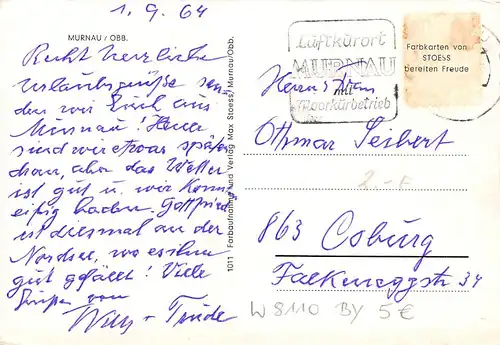 1.9.64
MURNAU / OBB.
Recht herzliche
Urlaubsgrüße sen
den wir Euch aus
Murnau! Heuer
sind wir etwas später
dran, aber das Wetter
ist gut u. wir konn
fleißig baden. Gottfried
ist diesmal an der
Nordsee, wo es ihm
gut gefällt! Viele
Grüße von
Willy + Trude
1011 Farbaufnahme und Verlag Max Stoess, Murnau/Obb.
Luftkurort
MURNAU
mit
Moorkurbetrieb
Farbkarten von
STOESS
bereiten Freude
Herrn
Othmar Seibert
2.-F
863 Coburg
Falkeneggstr 34
W 8110 BY 5€